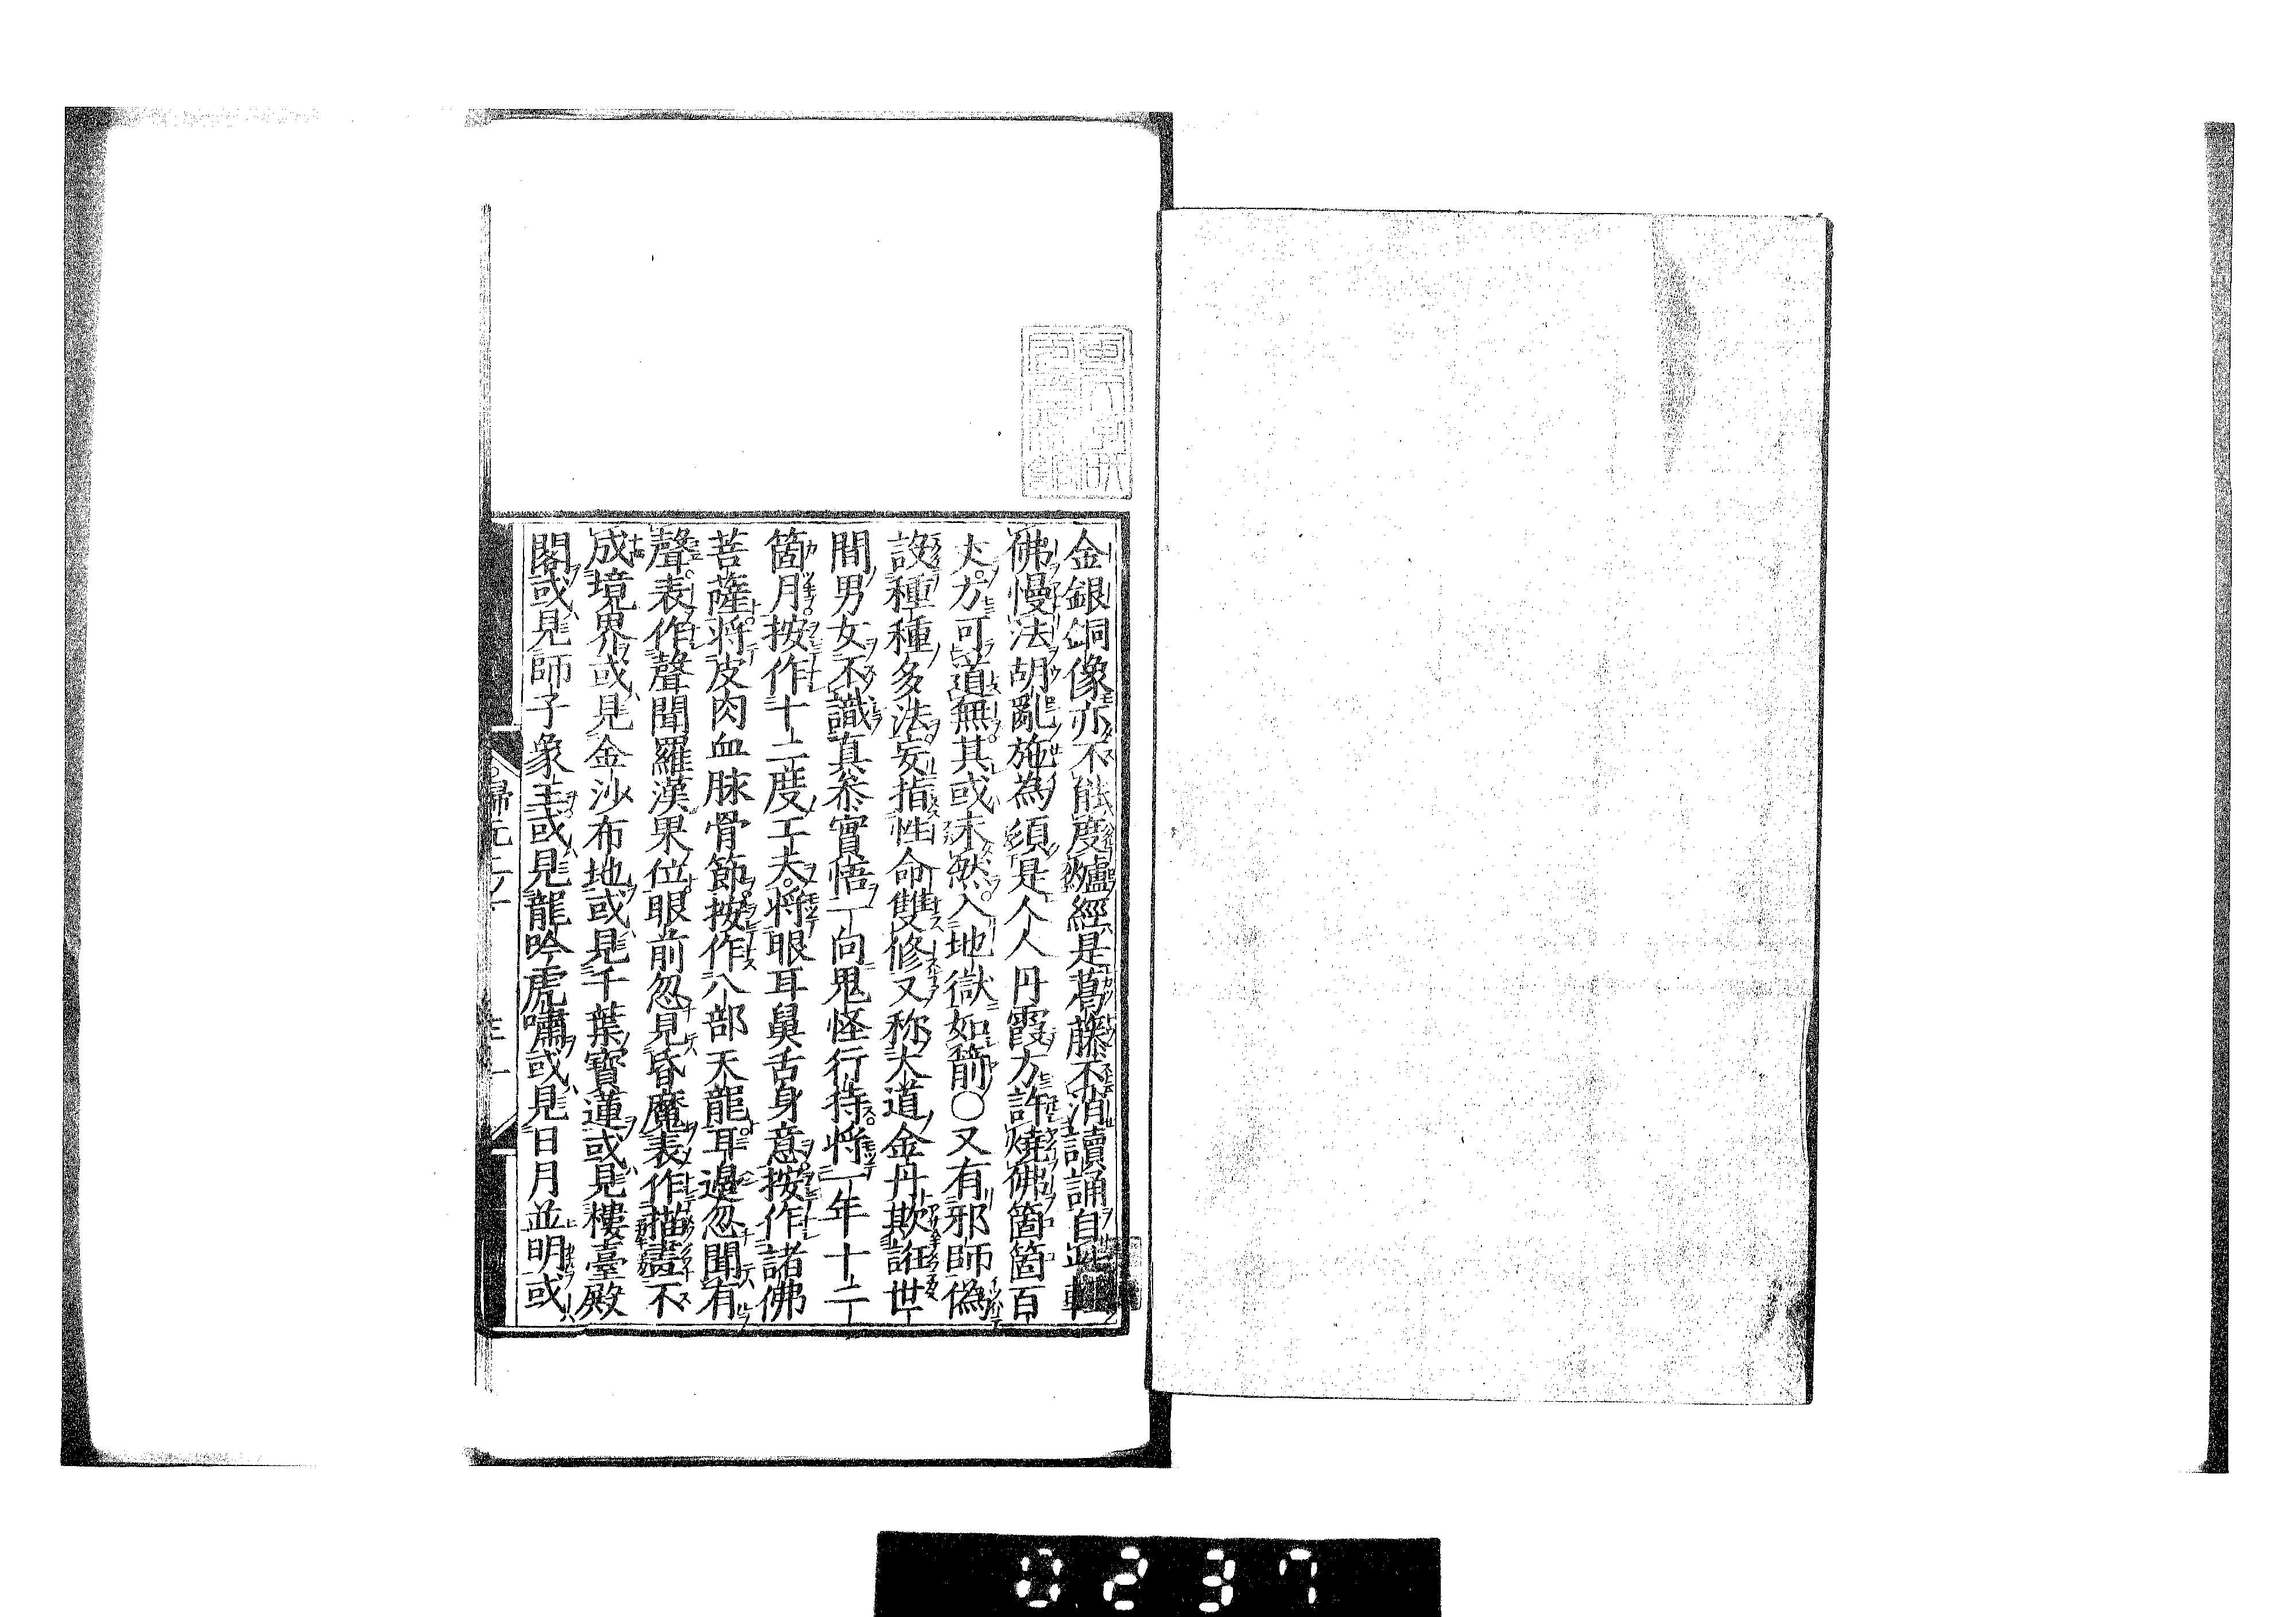 金銀銅像亦不能度爐經是葛藤不消讀誦自
佛慢法胡亂施為須是个人丹霞方許燒佛箇箇百
丈方可道無其或未然入地獄如箭○又有邪師偽
設種種多法妄指性命雙修又称大道金丹欺誑世
間男女不識真参實悟一向鬼怪行持將一年十二
箇月按作十二度工夫將眼耳鼻舌身意按作諸佛
菩薩將皮肉血脉骨節按作八部天龍耳邊忽聞有
聲表作聲聞羅漢果位眼前忽見昏魔表作描畫不
成境界或見金沙布地或見千葉寶蓮或見樓臺殿
閣或見師子象王或見龍吟虎嘯或見日月並明或
歸元
0237